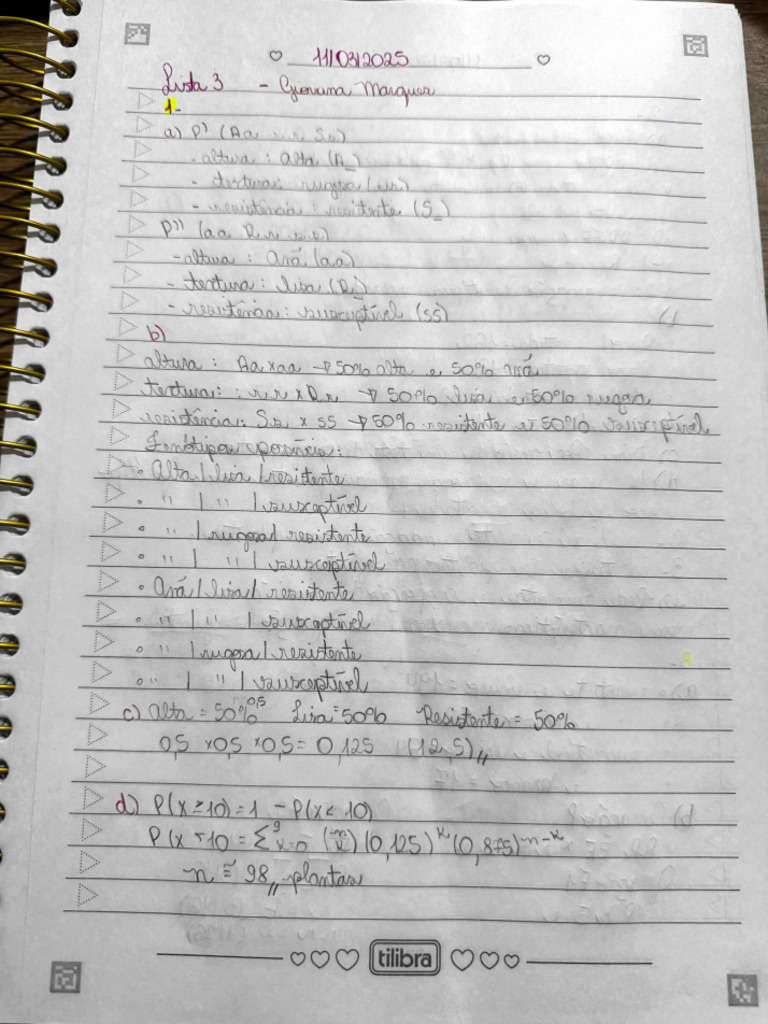 11/03/2025
Lista 3 - Giovana Marques
1-
a) P' (Aa rr Ss)
- altura : alta (A_)
- textura: rugosa (rr)
- resistência : resistente (S_)
P'' (aa Rr ss)
- altura : anã (aa)
- textura : lisa (R_)
- resistência : susceptível (ss)
b)
altura : Aa x aa → 50% alta e 50% anã
textura: : rr x Rr → 50% lisa e 50% rugosa
resistência: Ss x ss → 50% resistente e 50% susceptível
Fenótipos possíveis:
• Alta / lisa / resistente
• '' / '' / susceptível
• '' / rugosa / resistente
• '' / '' / susceptível
• Anã / lisa / resistente
• '' / '' / susceptível
• '' / rugosa / resistente
• '' / '' / susceptível
c) alta = 50% 0,5 Lisa = 50% Resistente = 50%
0,5 x 0,5 x 0,5 = 0,125 (12,5),,
d) P(x ≥ 10) = 1 - P(x < 10)
P(x < 10 = Σ⁹ₖ₌₀ (n/k) (0,125)ᵏ (0,875)ⁿ⁻ᵏ
n ≅ 98,, plantas
tilibra